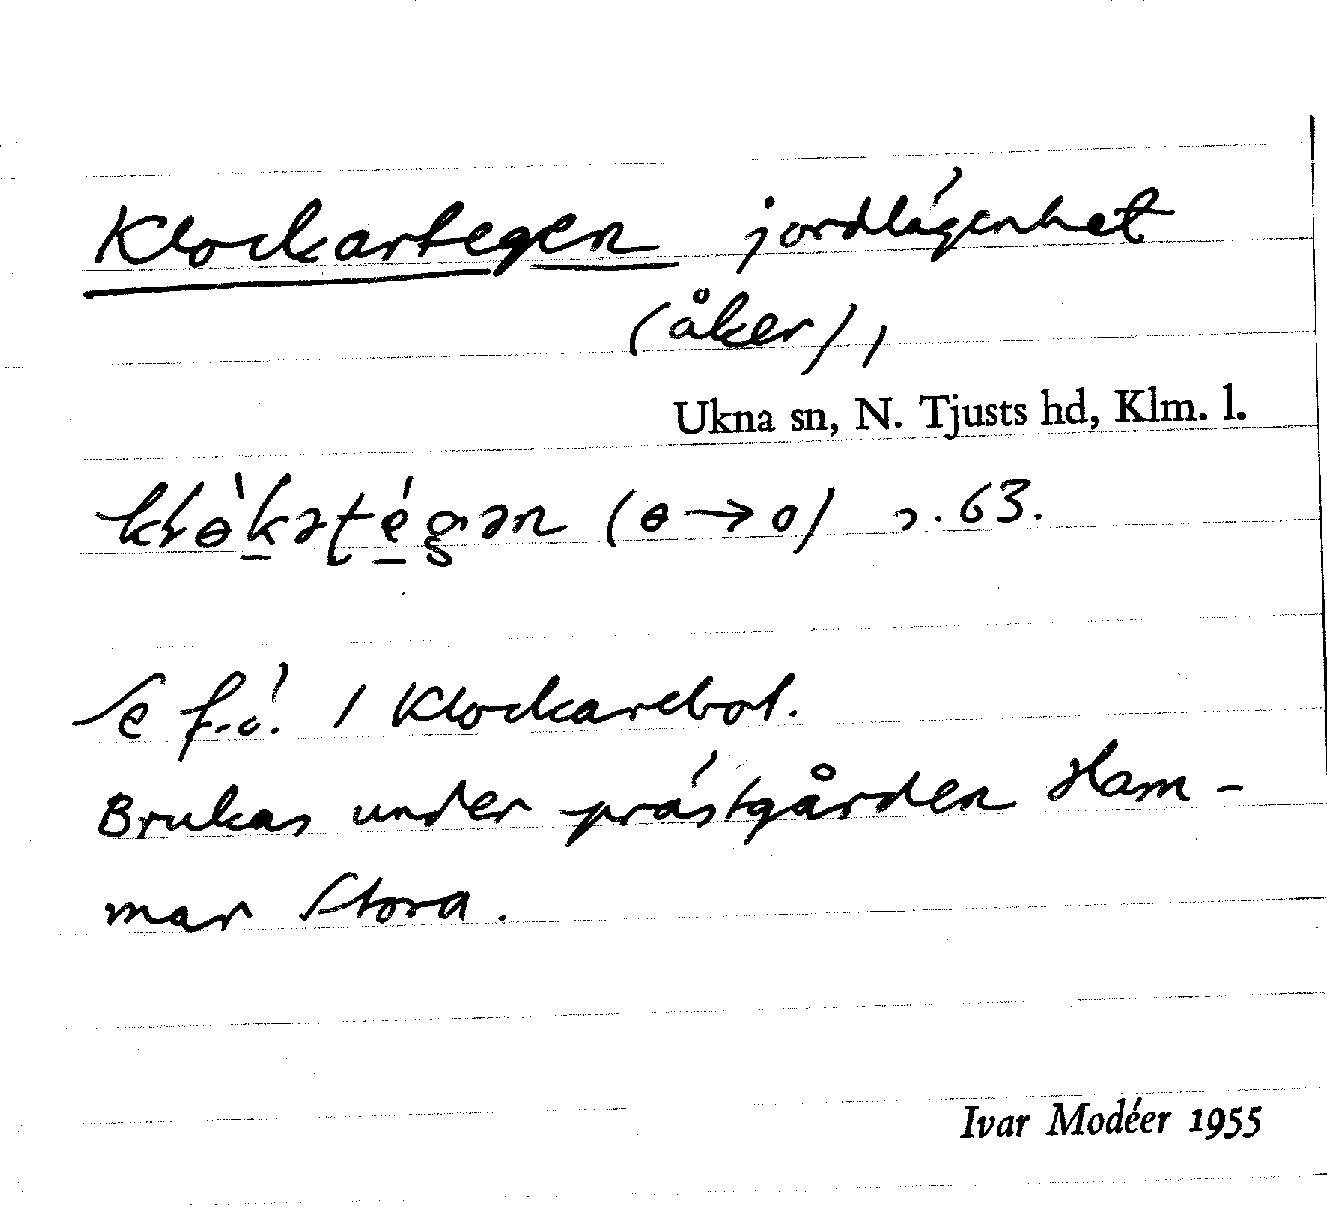 Klockartegen jordlägenhet
(åker),
Ukna sn, N. Tjusts hd, Klm. l.
(ɵ→o) 63.
Se f.ö. Klockarebol.
Brukas under prästgården Ham-
mar Stora.
Ivar Modéer 1955